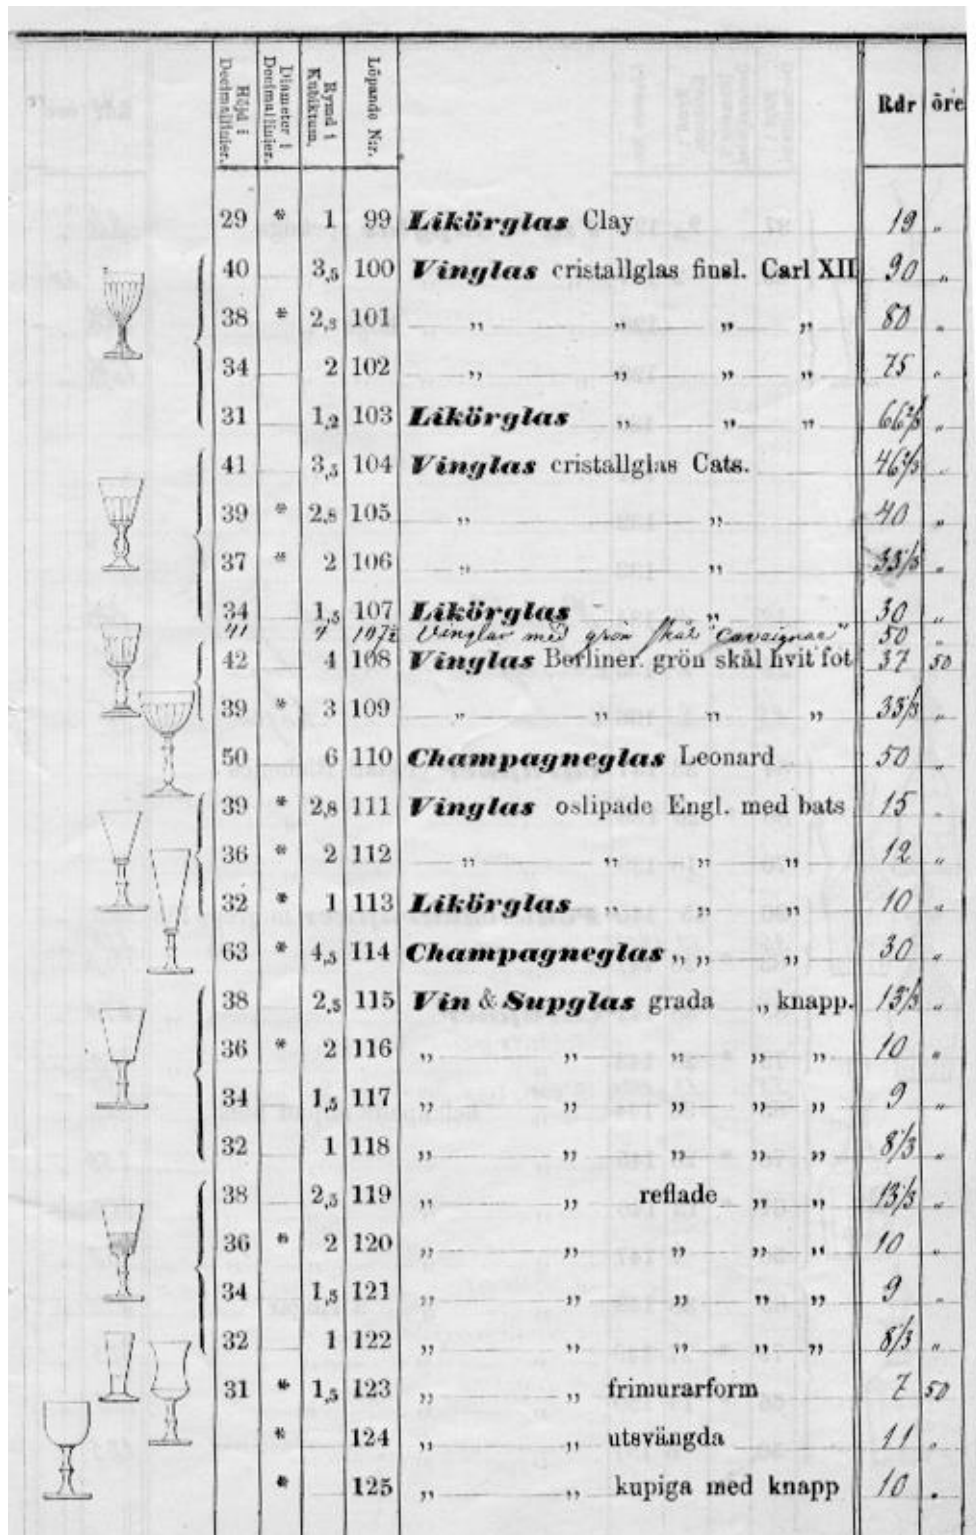 Höjd i Decimallinier. Diameter i Decimallinier. Rymd i Kubiktum. Löpande Nr. Rdr öre
29 * 1 99 Likörglas Clay 19 „
40 3,5 100 Vinglas cristallglas finsl. Carl XII 90 „
38 * 2,8 101 „ „ „ „ 80 „
34 2 102 „ „ „ „ 75 „
31 1,2 103 Likörglas „ „ „ 66 2/3 „
41 3,5 104 Vinglas cristallglas Cats. 46 2/3 „
39 * 2,8 105 „ „ 40 „
37 * 2 106 „ „ 33 1/3 „
34 1,5 107 Likörglas „ 30 „
41 4 107½ Vinglas med grön skål "Cavaignac" 50 „
42 4 108 Vinglas Berliner. grön skål hvit fot 37 50
39 * 3 109 „ „ „ „ 33 1/3 „
50 6 110 Champagneglas Leonard 50 „
39 * 2,8 111 Vinglas oslipade Engl. med bats 15 „
36 * 2 112 „ „ „ „ 12 „
32 * 1 113 Likörglas „ „ „ 10 „
63 * 4,5 114 Champagneglas „ „ „ 30 „
38 2,5 115 Vin & Supglas grada „ knapp. 13 1/3 „
36 * 2 116 „ „ „ „ „ 10 „
34 1,5 117 „ „ „ „ „ 9 „
32 1 118 „ „ „ „ „ 8 1/3 „
38 2,5 119 „ „ reflade „ „ 13 1/3 „
36 * 2 120 „ „ „ „ „ 10 „
34 1,5 121 „ „ „ „ „ 9 „
32 1 122 „ „ „ „ „ 8 1/3 „
31 * 1,5 123 „ „ frimurarform 7 50
* 124 „ „ utsvängda 11 „
* 125 „ „ kupiga med knapp 10 „